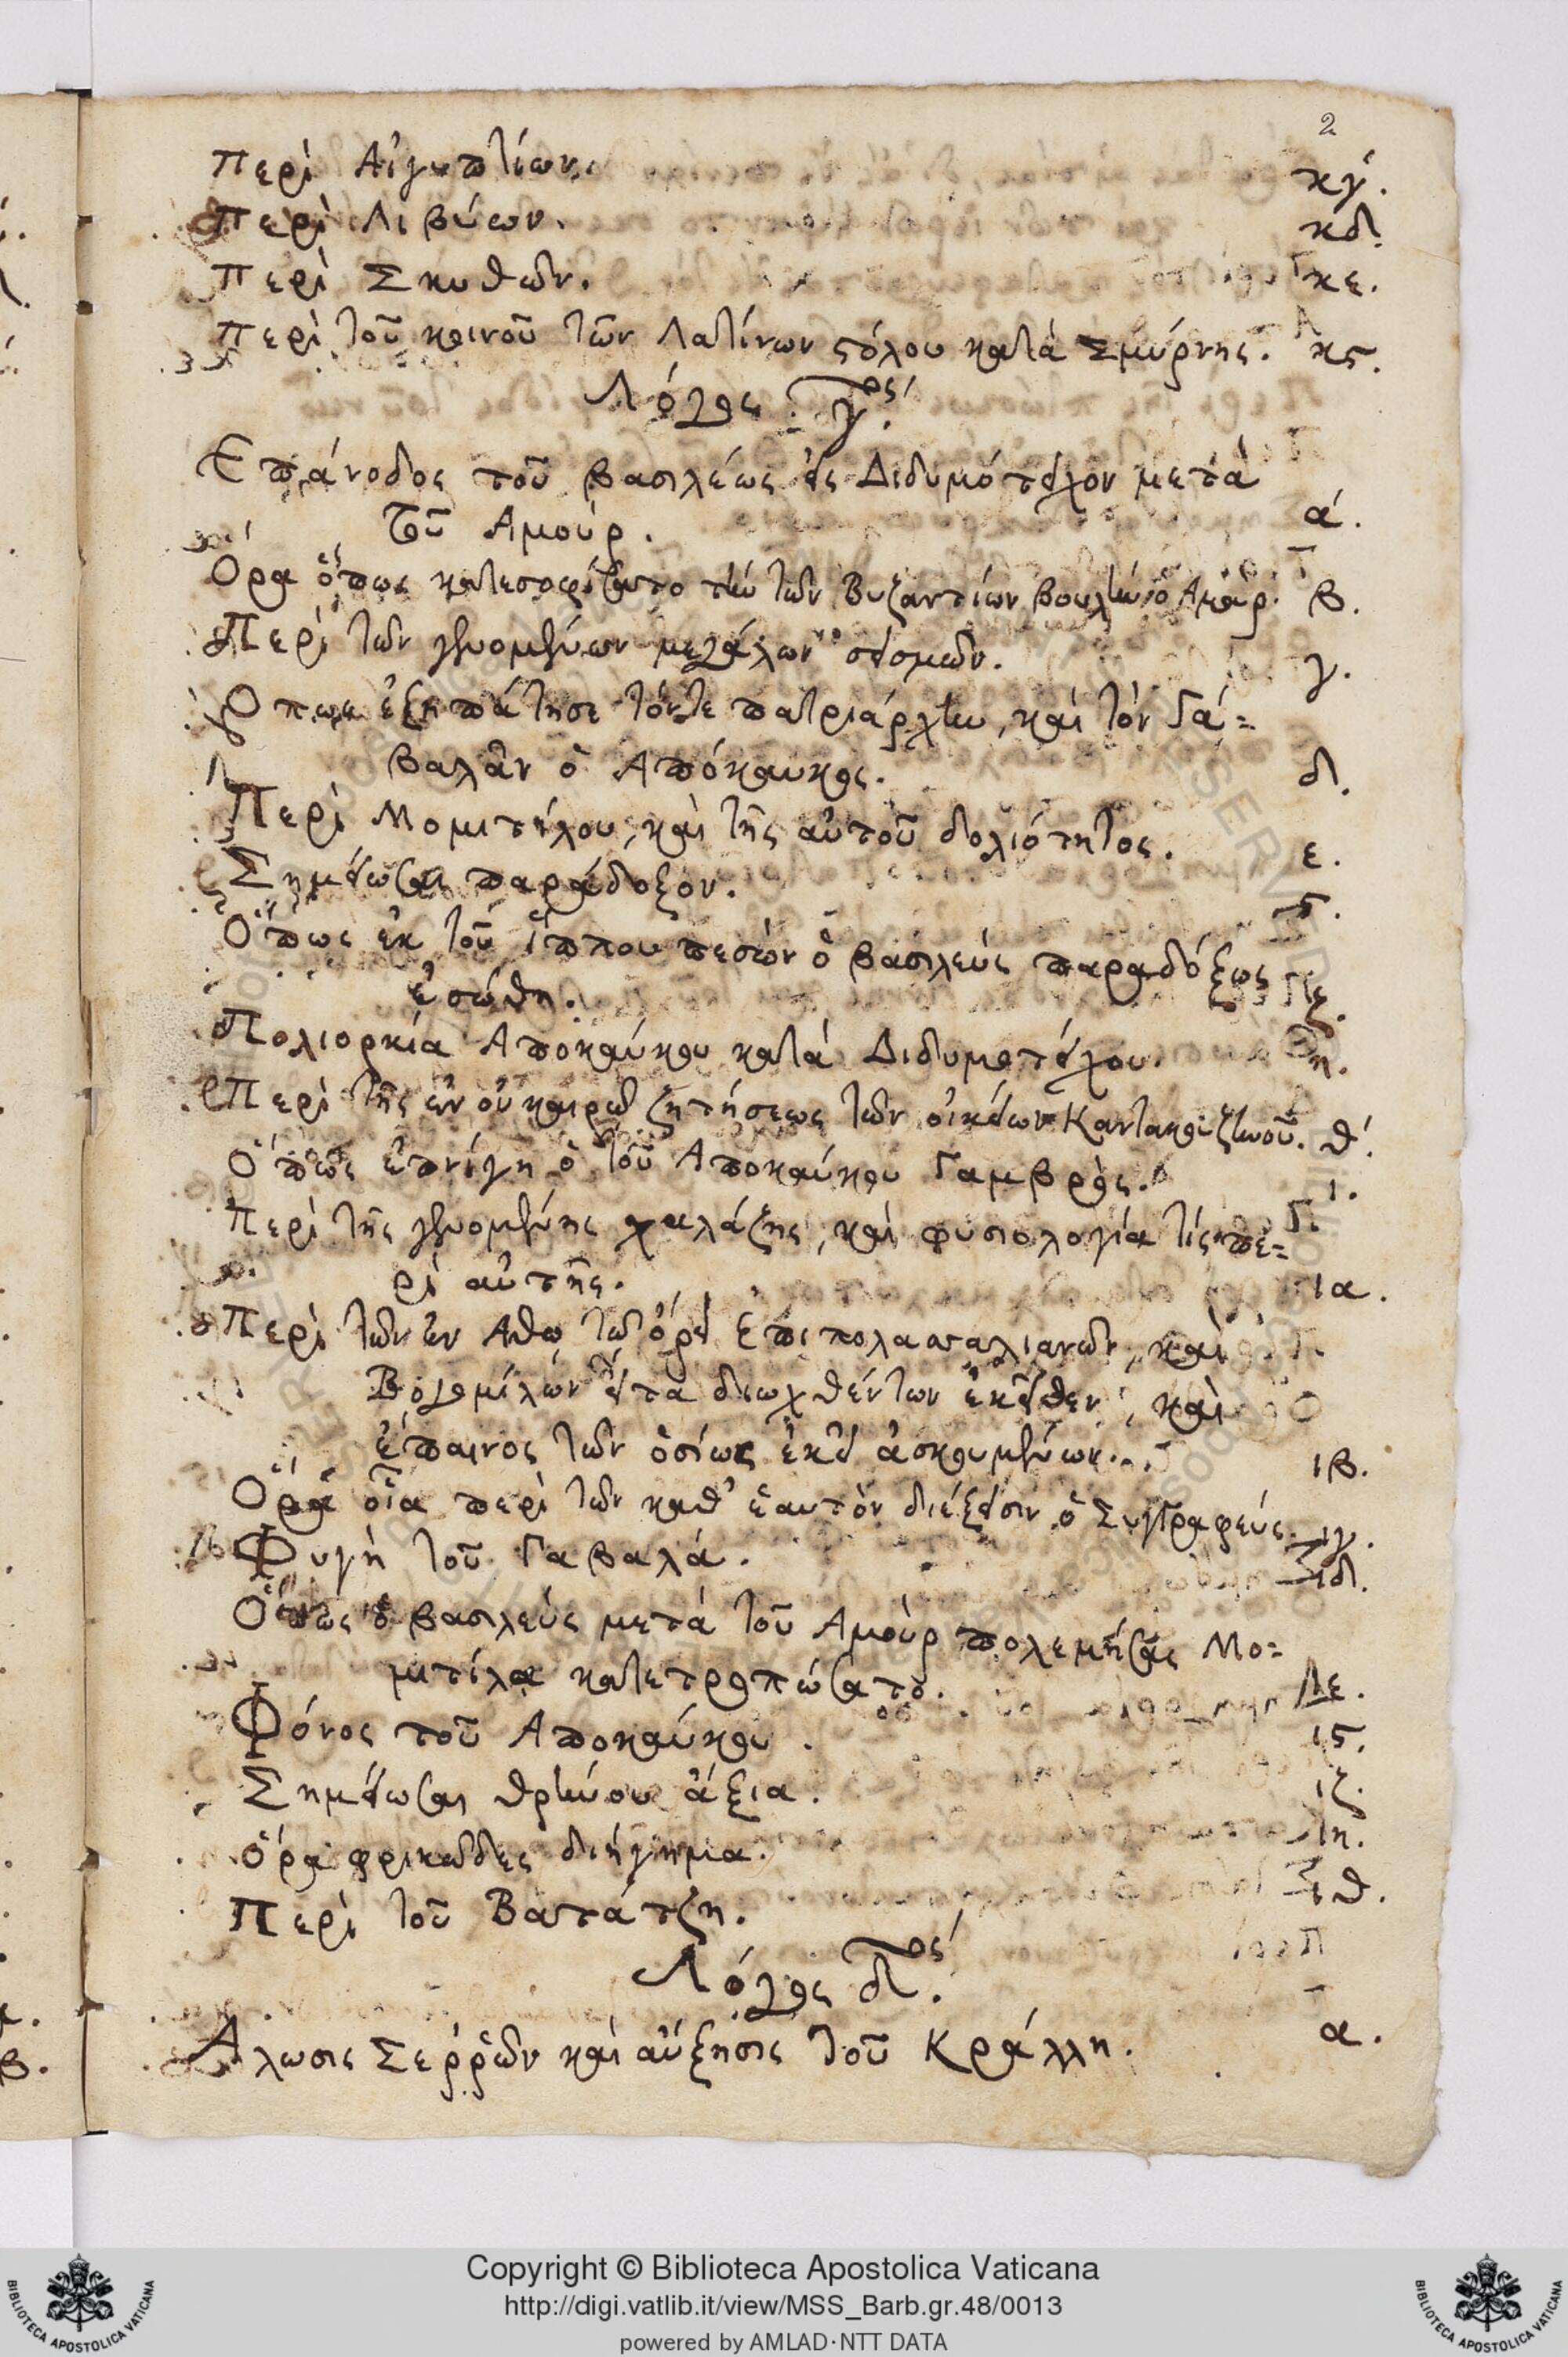 2
Περὶ Αἰγυπτίων. κγ.
Περὶ Λιβύων. κδ.
Περὶ Σκυθῶν. κε.
Περὶ τοῦ κοινοῦ τῶν Λατίνων στόλου κατὰ Σμύρνης. κς.
Λόγος γ΄ος.
Επάνοδος τοῦ βασιλέως εἰς Διδυμότειχον μετὰ
τοῦ Αμούρ. α.
Ὅρα ὅπως κατεσοφίσατο τὴν τῶν Βυζαντίων βουλὴν ὁ Αμούρ. β.
Περὶ τῶν γενομένων μεγάλων σεισμῶν. γ.
Οπως ἐξηπάτησε τόντε πατριάρχην, καὶ τὸν Γά=
βαλᾶν ὁ Απόκαυκος. δ.
Περὶ Μομιτείλου, καὶ τῆς αὐτοῦ δολιότητος. ε.
Σημείωσαι παράδοξον. ς.
Ὅπως ἐκ τοῦ ἵππου πεσὼν ὁ βασιλεὺς παραδόξως
ἐσώθη. ζ.
Πολιορκία Αποκαύκου κατὰ Διδυμοτείχου. η.
Περὶ τῆς ἐν οὐ καιρῷ ζητήσεως τῶν οἰκείων Καντακουζηνοῦ. θ.
Ὅπως ἐπνίγη ὁ τοῦ Αποκαύκου Γαμβρὸς. ι.
Περὶ τῆς γενομένης χαλάζης, καὶ φυσιολογία τίς πε=
ρὶ αὐτῆς. ια.
Περὶ τῶν ἐν Αθῳ τῷ ὄρει ἐπιπολασαλιανῶν, καὶ
Βογομίλων εἶτα διωχθέντων ἐκεῖθεν, καὶ
ἔπαινος τῶν ὁσίως ἐκεῖ ἀσκουμένων. ιβ.
Ὅρα οἷα περὶ τῶν καθ' ἑαυτὸν διέξεισιν ὁ Συγγραφεύς. ιγ.
Φυγὴ τοῦ Γαβαλά. ιδ.
Ὅπως ὁ βασιλεὺς μετὰ τοῦ Αμούρ πολεμήσας Μο=
μιτίλα κατετροπώσατο. ιε.
Φόνος τοῦ Αποκαύκου. ις.
Σημείωσαι θρήνου ἄξια. ιζ.
Ὅρα φρικῶδες διήγημα. ιη.
Περὶ τοῦ Βατάτζη. ιθ.
Λόγος δ΄ος.
Αλωσις Σερρῶν καὶ αὔξησις τοῦ Κράλλη. α.
Copyright © Biblioteca Apostolica Vaticana
http://digi.vatlib.it/view/MSS_Barb.gr.48/0013
powered by AMLAD·NTT DATA
BIBLIOTECA APOSTOLICA VATICANA
BIBLIOTECA APOSTOLICA VATICANA